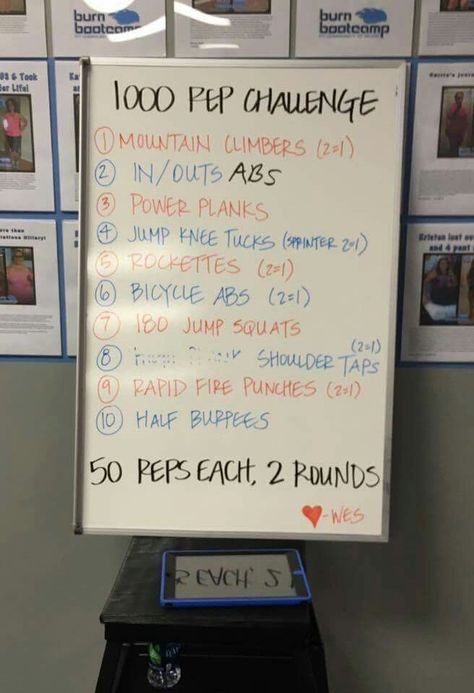 burn
bootcamp
burn
bootcamp
1000 REP CHALLENGE
1 MOUNTAIN CLIMBERS (2=1)
2 IN/OUTS ABS
3 POWER PLANKS
4 JUMP KNEE TUCKS (SPRINTER 2=1)
5 ROCKETTES (2=1)
6 BICYCLE ABS (2=1)
7 180 JUMP SQUATS
8 SHOULDER TAPS (2=1)
9 RAPID FIRE PUNCHES (2=1)
10 HALF BURPEES
50 REPS EACH, 2 ROUNDS
♥-WES